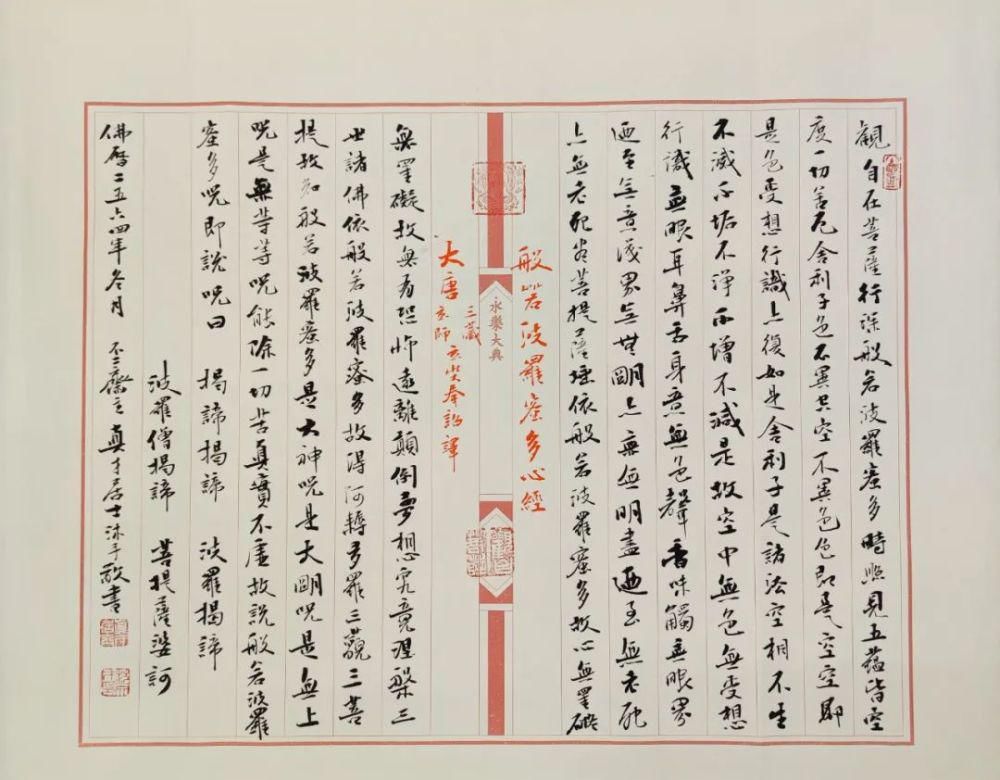 觀自在菩薩行深般若波羅蜜多時照見五蘊皆空
度一切苦厄舍利子色不異空空不異色色即是空空即
是色受想行識亦復如是舍利子是諸法空相不生
不滅不垢不淨不增不減是故空中無色無受想
行識無眼耳鼻舌身意無色聲香味觸無眼界
迺至無意識界無無明亦無無明盡迺至無老死
亦無老死盡菩提薩埵依般若波羅蜜多故心無罣礙
般若波羅蜜多心經
永樂大典
大唐三藏玄師玄奘奉詔譯
無罣礙故無有恐怖遠離顛倒夢想究竟涅槃三
世諸佛依般若波羅蜜多故得阿耨多羅三藐三菩
提故知般若波羅蜜多是大神咒是大明咒是無上
咒是無等等咒能除一切苦真實不虛故說般若波羅
蜜多咒即說咒曰 揭諦揭諦 波羅揭諦
波羅僧揭諦 菩提薩婆訶
佛曆二五六四年冬月 齋主真居士沐手敬書